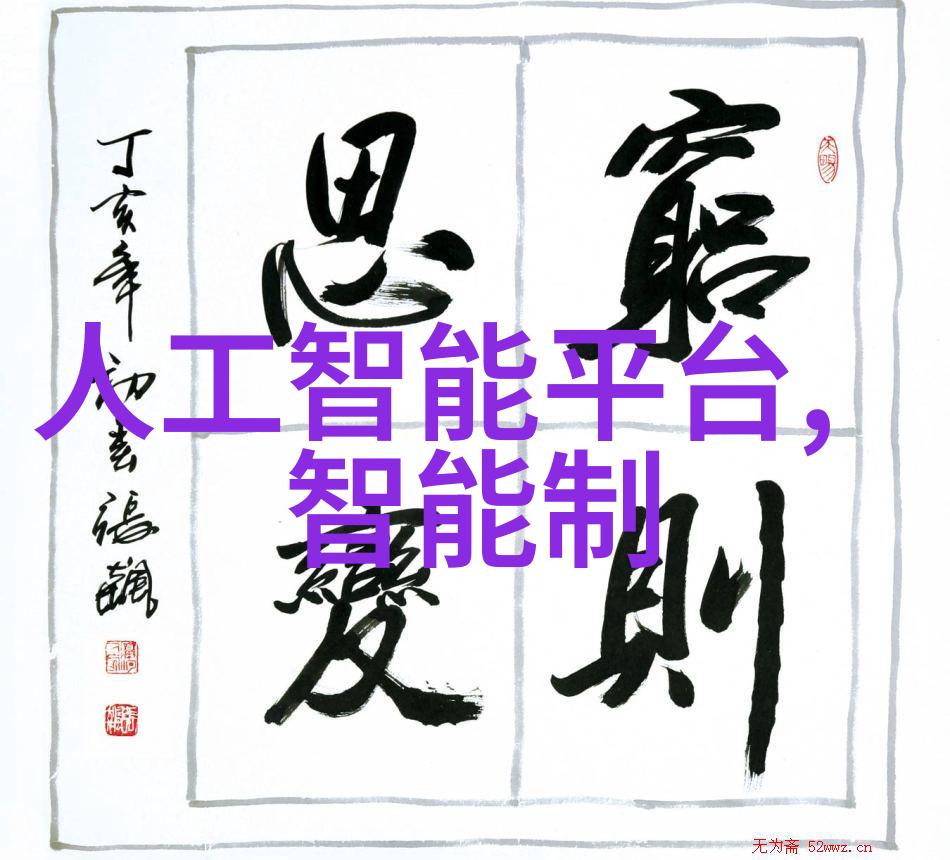 窮則
思變
丁亥年初春張飄
人工智能平台,
智能制
无为斋 52wwz.cn